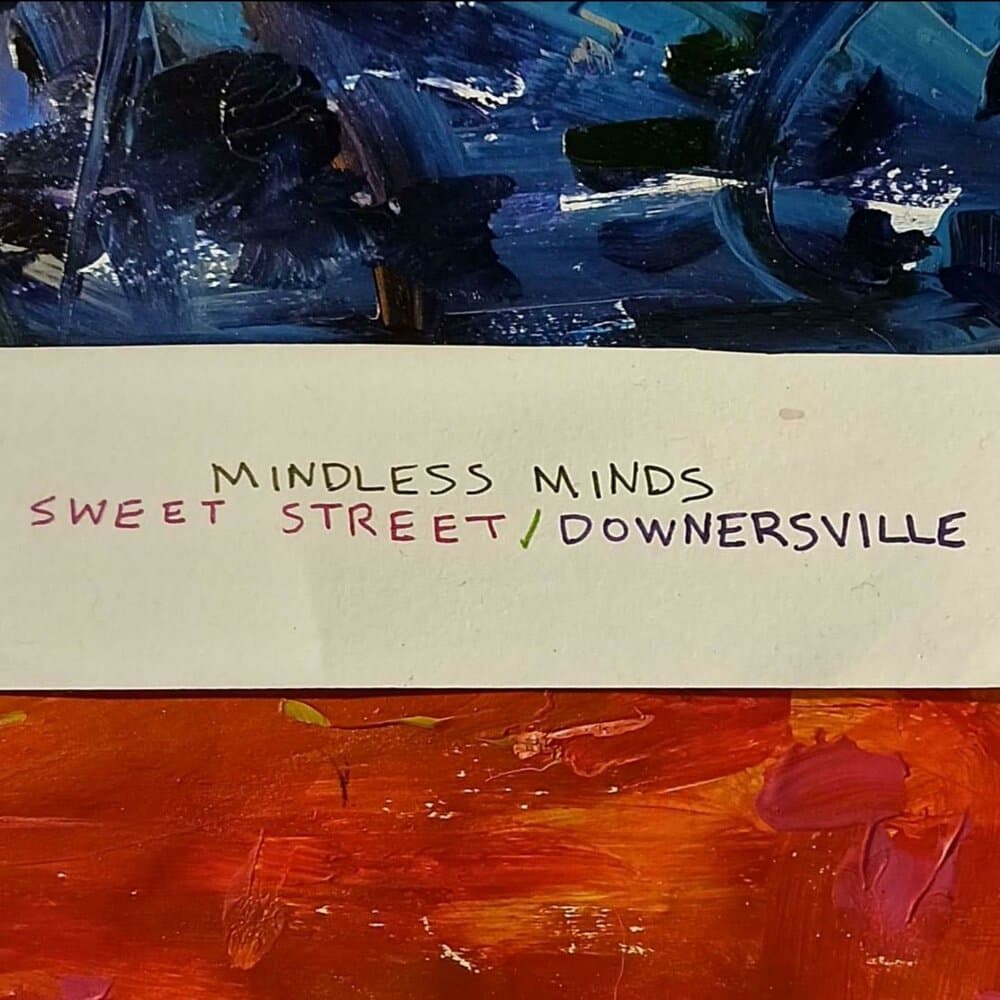 MINDLESS MINDS
SWEET STREET/DOWNERSVILLE